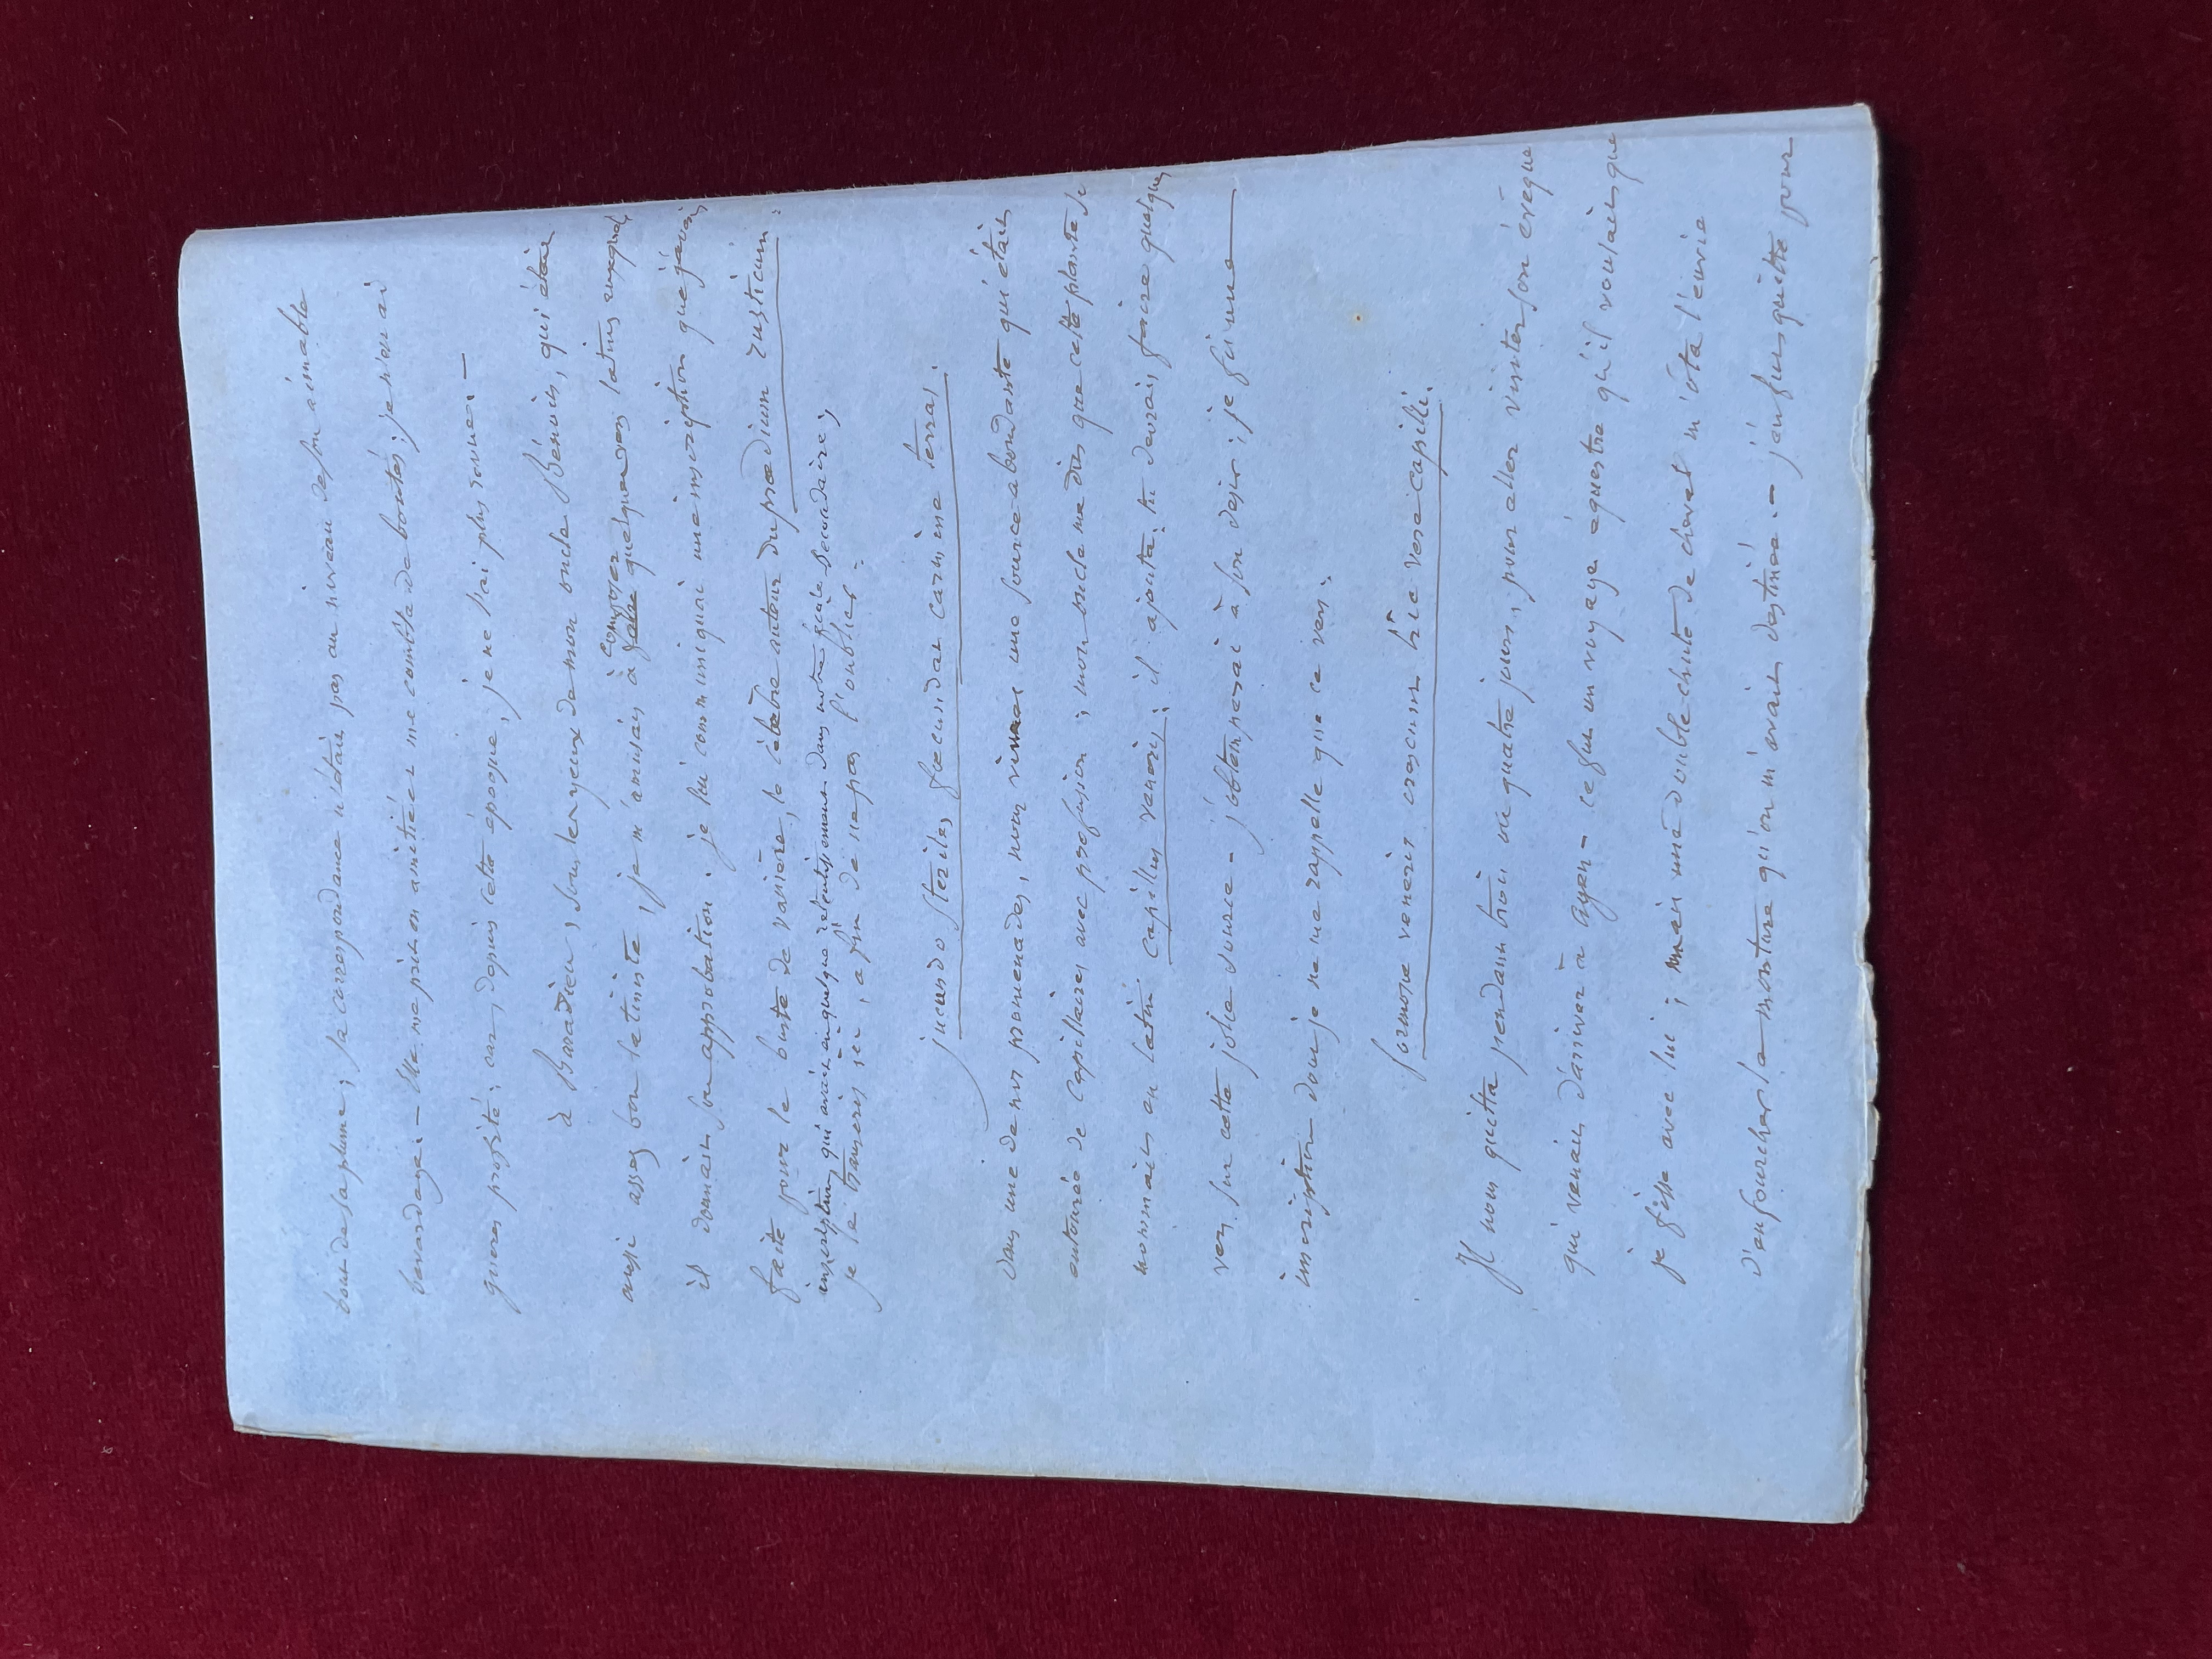 bout de sa plume ; sa correspondance n'était pas au niveau de son aimable
bavardage. — Elle me prit en amitié et me combla de bontés ; je n'en ai
gueres profité ; car, depuis cette époque, je ne l'ai plus revue. —
à Barradieu, sous les yeux de mon oncle Bénoit, qui était
aussi assez bon latiniste, je m'amusais à composer quelques vers latins auxquels
il donnait son approbation. je lui communiquai une inscription que j'avais
faite pour le buste de vanière, le célèbre auteur du praedium rusticum :
inscription qui avait eu quelque retentissement dans notre école secondaire ;
je la transcris ici, afin de ne pas l'oublier :
jucundo steriles fecundat carmine terras.
Dans une de nos promenades, nous vimes une source abondante qui était
entourée de capillaires avec profusion ; mon oncle me dit que cette plante se
nommait en latin capillus veneris ; il ajouta : tu devrais faire quelques
vers sur cette jolie source — j'obtempérai à son desir ; je fis une
inscription dont je ne me rappelle que ce vers :
formosae veneris crescunt hîc vere capilli.
Il nous quitta pendant trois ou quatre jours, pour aller visiter son évêque
qui venait d'arriver à agen — ce fut un voyage équestre qu'il voulait que
je fisse avec lui ; mais une double chute de cheval m'ôta l'envie
d'enfourcher la monture qu'on m'avait destinée. — j'en fus quitte pour